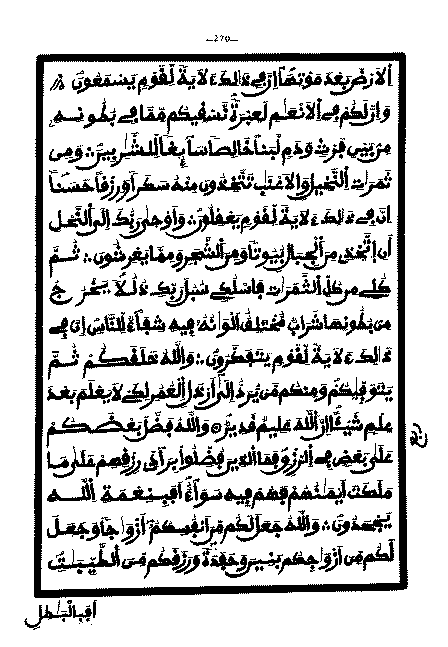 —270—
اَلَارْضَ بَعْدَ مَوْتِهَا إِنَّ فِے ذَٰلِكَ ءَلَايَةً لِّقَوْمٍ يَسْمَعُونَ
وَإِنَّ لَكُمْ فِے اِلَانْعَٰمِ لَعِبْرَةً نَّسْقِيكُم مِّمَّا فِے بُطُونِهِۦ
مِنۢ بَيْنِ فَرْثٍ وَدَمٍ لَّبَناً خَالِصاً سَآئِغاً لِّلشَّٰرِبِينَ وَمِن
ثَمَرَٰتِ اِلنَّخِيلِ وَالَاعْنَٰبِ تَتَّخِذُونَ مِنْهُ سَكَراً وَرِزْقاً حَسَناً
اِنَّ فِے ذَٰلِكَ ءَلَايَةً لِّقَوْمٍ يَعْقِلُونَ وَأَوْحَىٰ رَبُّكَ إِلَى اَلنَّحْلِ
أَنِ اِتَّخِذِے مِنَ اَلْجِبَالِ بُيُوتاً وَمِنَ اَلشَّجَرِ وَمِمَّا يَعْرِشُونَ ثُمَّ
كُلِے مِن كُلِّ اِلثَّمَرَٰتِ فَاسْلُكِے سُبُلَ رَبِّكِ ذُلُلًا يَخْرُجُ
مِنۢ بُطُونِهَا شَرَابٌ مُّخْتَلِفٌ اَلْوَٰنُهُۥ فِيهِ شِفَآءٌ لِّلنَّاسِ إِنَّ فِے
ذَٰلِكَ ءَلَايَةً لِّقَوْمٍ يَتَفَكَّرُونَ وَاللَّهُ خَلَقَكُمْ ثُمَّ
يَتَوَفَّيٰكُمْ وَمِنكُم مَّنْ يُّرَدُّ إِلَىٰ أَرْذَلِ اِلْعُمُرِ لِكَے لَا يَعْلَمَ بَعْدَ
عِلْمٍ شَيْـاً اِنَّ اَللَّهَ عَلِيمٌ قَدِيرٌ وَاللَّهُ فَضَّلَ بَعْضَكُمْ
عَلَىٰ بَعْضٍ فِے اِلرِّزْقِ فَمَا اَلَّذِينَ فُضِّلُواْ بِرَآدِّے رِزْقِهِمْ عَلَىٰ مَا
مَلَكَتَ اَيْمَٰنُهُمْ فَهُمْ فِيهِ سَوَآءٌ اَفَبِنِعْمَةِ اِللَّهِ
يَجْحَدُونَ وَاللَّهُ جَعَلَ لَكُم مِّنَ اَنفُسِكُمُۥ أَزْوَٰجاً وَجَعَلَ
لَكُم مِّنَ اَزْوَٰجِكُم بَنِينَ وَحَفَدَةً وَرَزَقَكُم مِّنَ اَلطَّيِّبَٰتِ
أَفَبِالْبَٰطِلِ